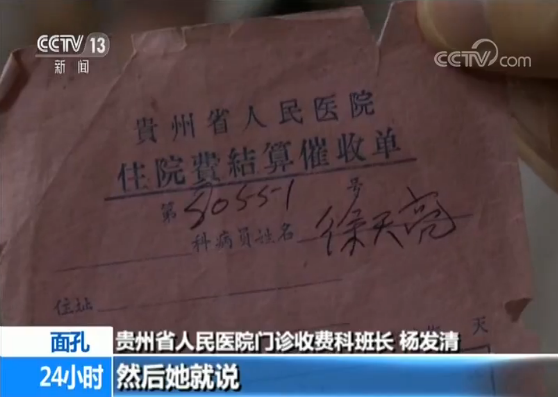 CCTV 13
新闻
CCTV.com
貴州省人民医院
住院费結算催收单
第 5055-1 号
科病員姓名 徐天亮
住址
天
面孔
贵州省人民医院门诊收费科班长 杨发清
24小时
然后她就说